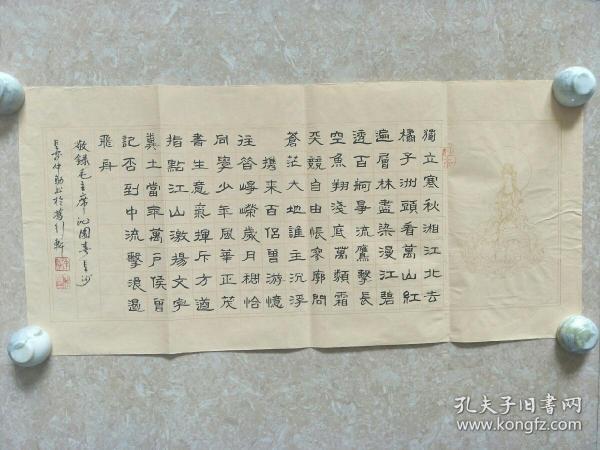 獨立寒秋湘江北去
橘子洲頭看萬山紅
遍層林盡染漫江碧
透百舸爭流鷹擊長
空魚翔淺底萬類霜
天競自由悵寥廓問
蒼茫大地誰主沉浮
攜來百侶曾游憶
往昔崢嶸歲月稠恰
同學少年風華正茂
書生意氣揮斥方遒
指點江山激揚文字
糞土當年萬戶侯曾
記否到中流擊浪遏
飛舟
敬錄毛主席沁園春長沙
孔夫子旧书网
www.kongfz.com